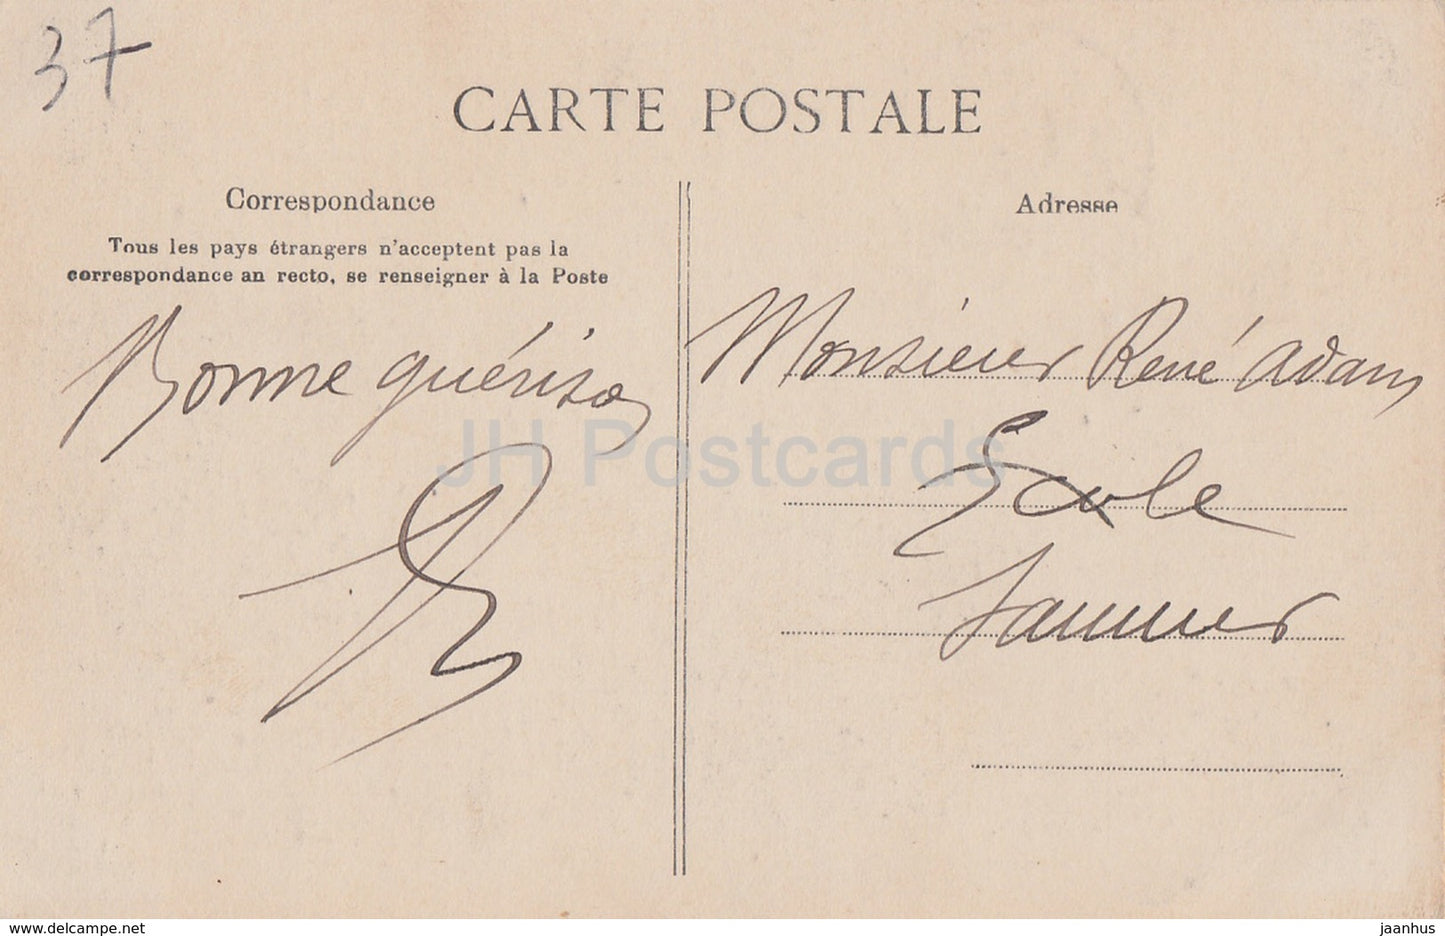 37
CARTE POSTALE
Correspondance
Tous les pays étrangers n'acceptent pas la
correspondance an recto, se renseigner à la Poste
Bonne guérison
Adresse
Monsieur René Adam
Ecole
Saumur
JH Postcards
www.delcampe.net
jaanhus